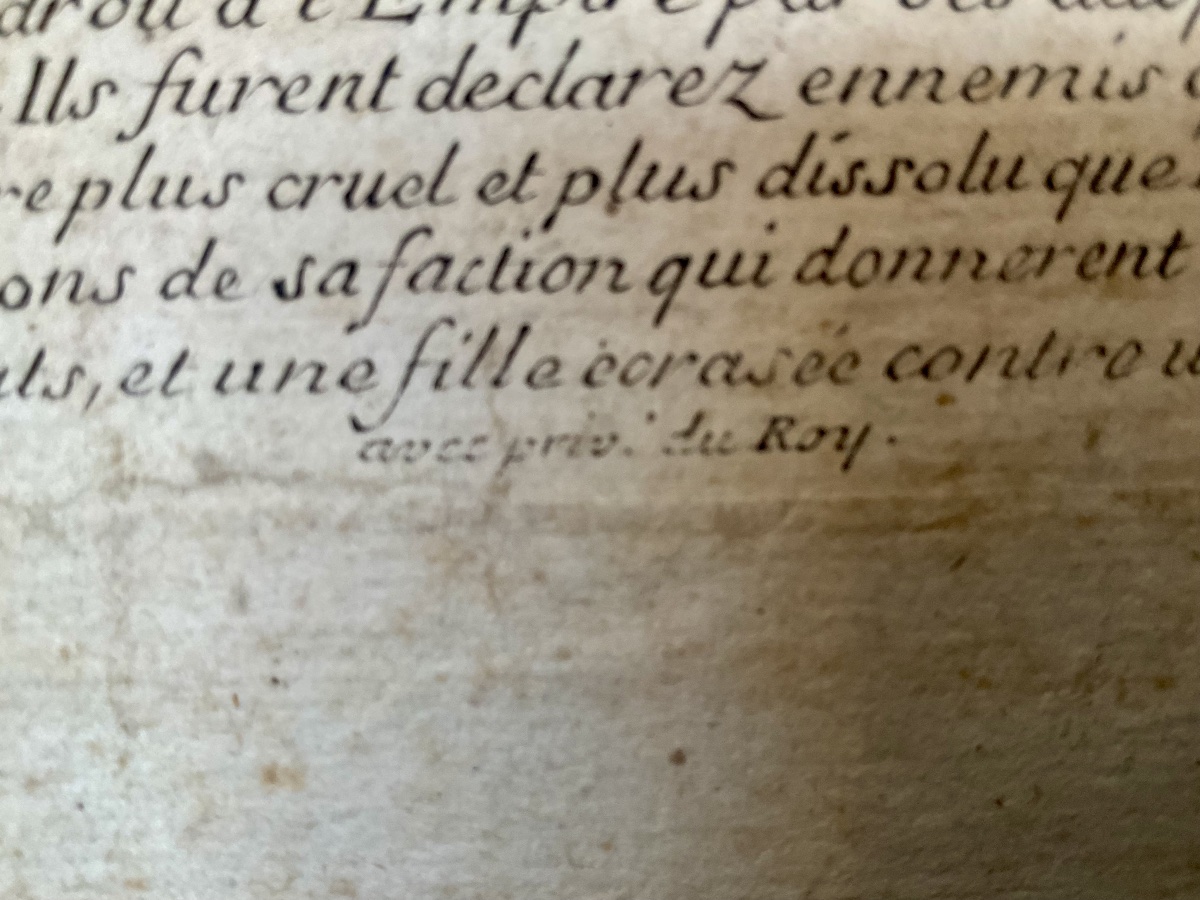 droit a l'Empire par
Ils furent declarez ennemis
plus cruel et plus dissolu que
ons de sa faction qui donnerent
et une fille ècrasée contre
avec priv. du Roy.